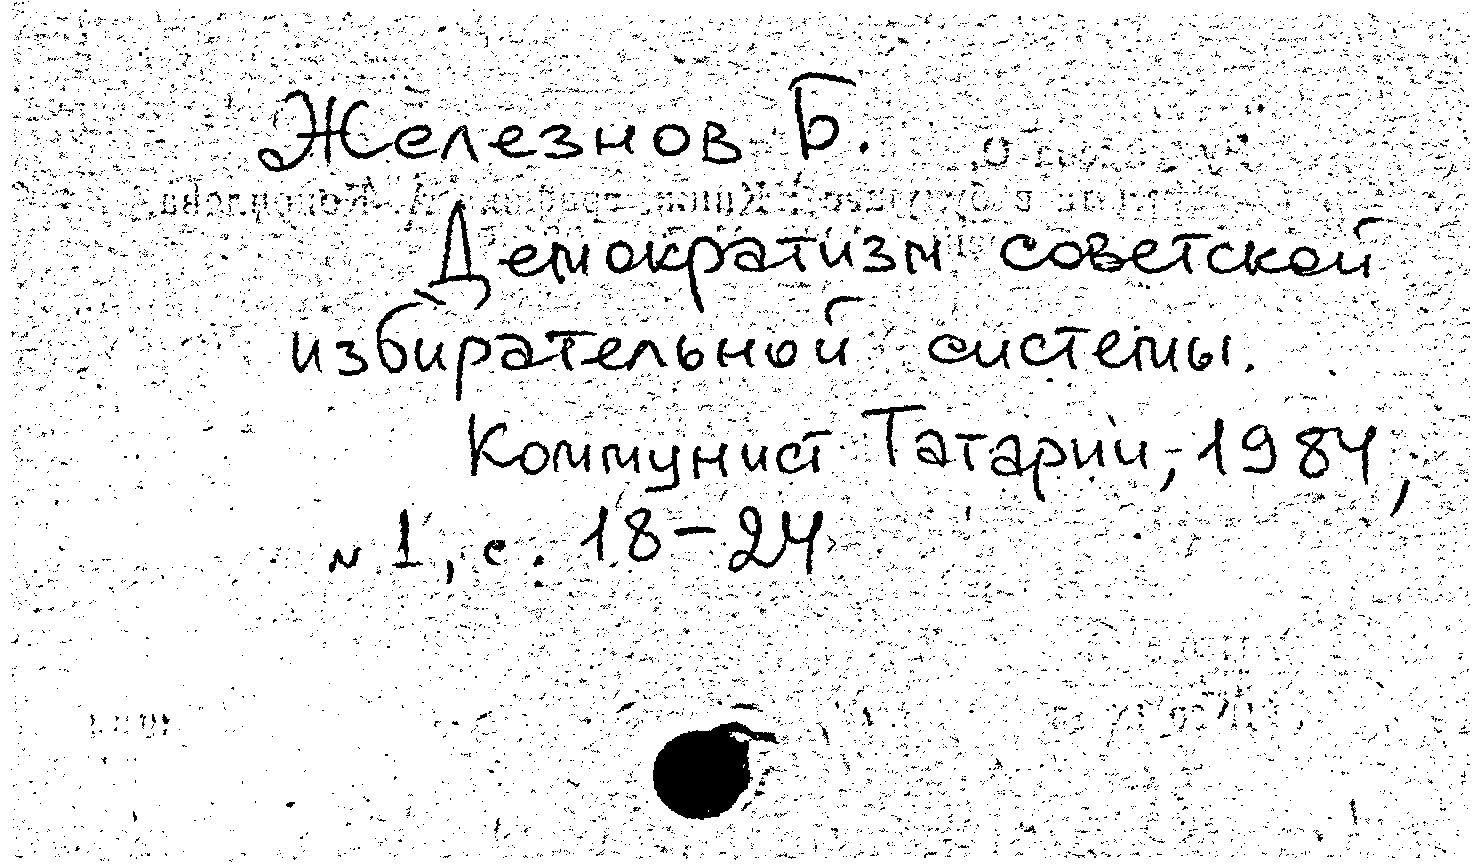 Железнов Б.
Демократизм советской
избирательной системы.
Коммунист Татарии, 1984,
N 1, с. 18-24